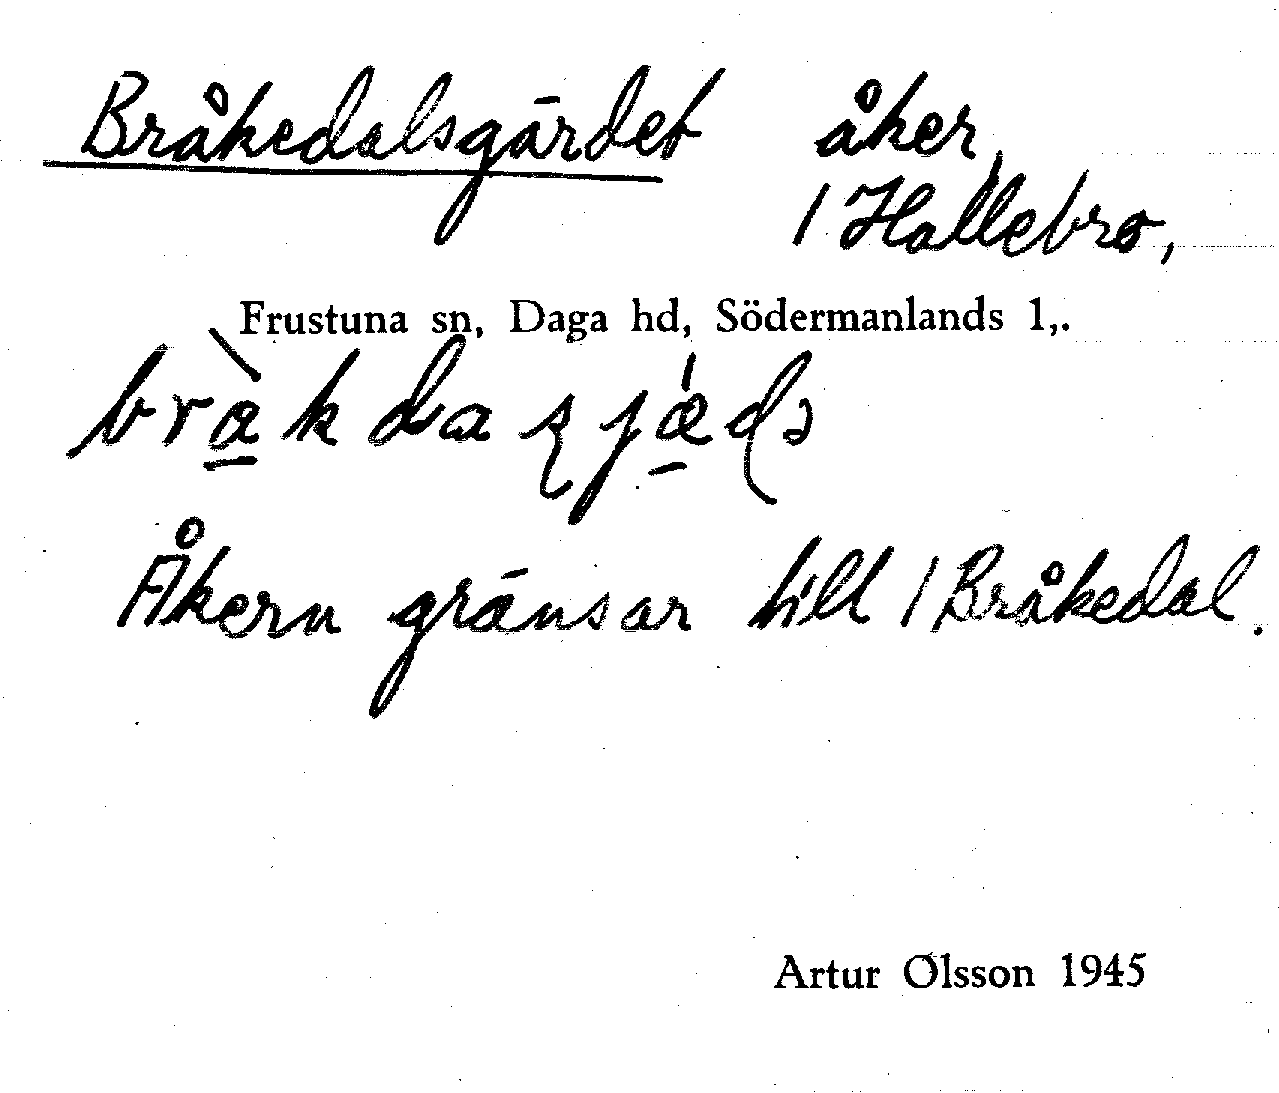 Bråkedalsgärdet åker,
/ Hallebro,
Frustuna sn, Daga hd, Södermanlands l,.
Åkern gränsar till / Bråkedal.
Artur Olsson 1945